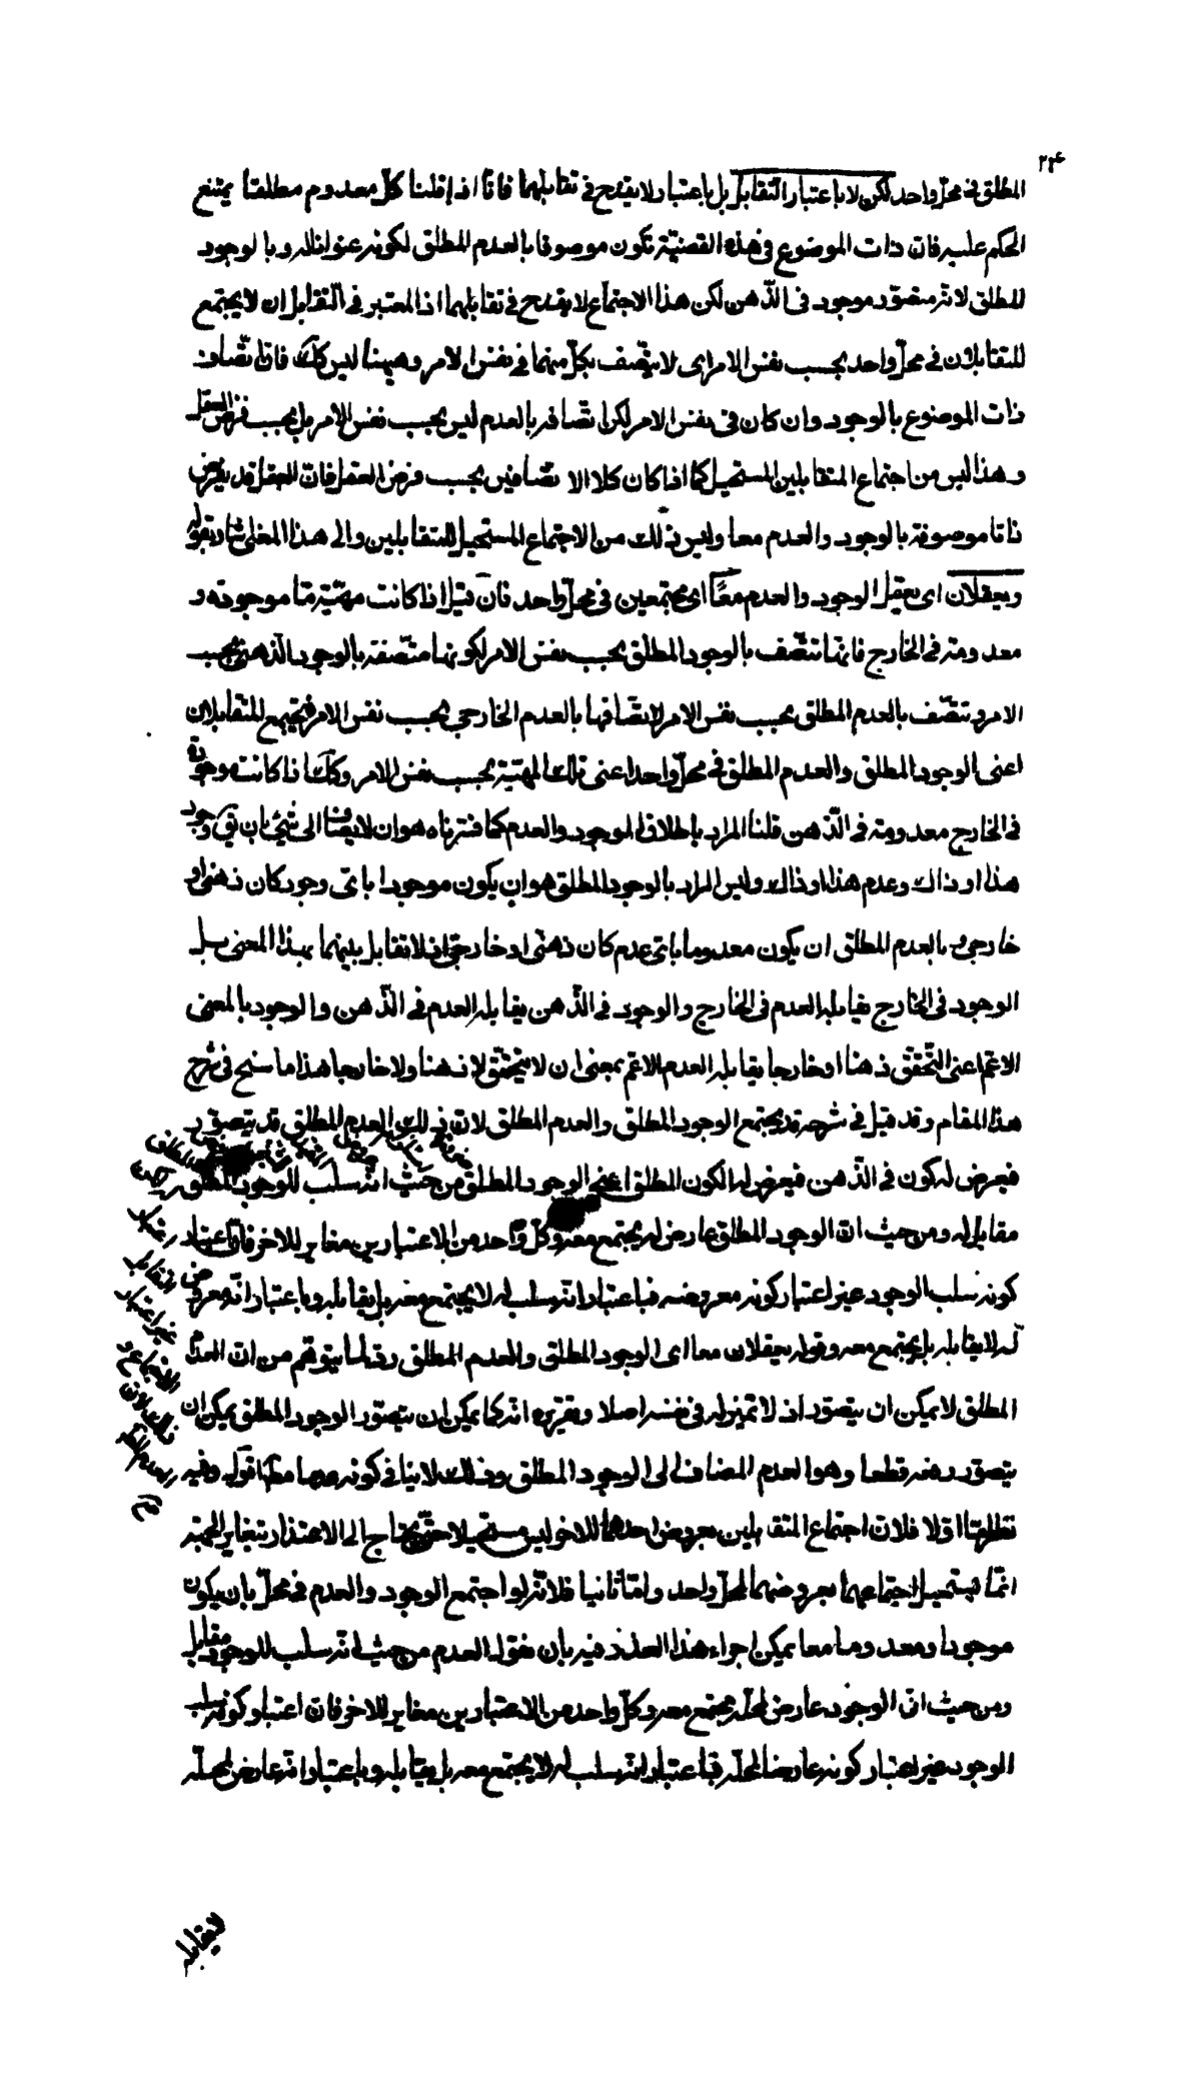 ٢٢٤
المطلق فى محل واحد لكن لا باعتبار التقابل بل باعتبار لا يقدح فى تقابلهما فانا اذا قلنا كل معدوم مطلقا يمتنع
الحكم عليه فان ذات الموضوع فى هذه القضية تكون موصوفا بالعدم المطلق لكونه عنوانا له وبالوجود
المطلق لانه متصور موجود فى الذهن لكن هذا الاجتماع لا يقدح فى تقابلهما اذ المعتبر فى التقابل ان لا يجتمع
المتقابلان فى محل واحد بحسب نفس الامر اى لا يتصف بكل منهما فى نفس الامر وههنا ليس كك فان اتصاف
ذات الموضوع بالوجود وان كان فى نفس الامر لكن اتصافه بالعدم ليس بحسب نفس الامر بل بحسب فرض العقل
وهذا ليس من اجتماع المتقابلين المستحيل كما اذا كان كلا الاتصافين بحسب فرض العقل فان العقل قد يفرض
ذاتا موصوفة بالوجود والعدم معا وليس ذلك من الاجتماع المستحيل للمتقابلين والى هذا المعنى اشار بقوله
ويعقلان اى يعقل الوجود والعدم معًا اى مجتمعين فى محل واحد فان قيل اذا كانت مهيّة ما موجودة و
معدومة فى الخارج فانها تتصف بالوجود المطلق بحسب نفس الامر لكونها متصفة بالوجود الذهنى بحسب
الامر وتتصف بالعدم المطلق بحسب نفس الامر لاتصافها بالعدم الخارجى بحسب نفس الامر فيجتمع المتقابلان
اعنى الوجود المطلق والعدم المطلق فى محل واحد اعنى تلك المهيّة بحسب نفس الامر وكك اذا كانت موجودة
فى الخارج معدومة فى الذهن قلنا المراد باطلاق الوجود والعدم كما فسرناه هو ان لا يضاف الى شئ بان يق وجود
هذا او ذاك وعدم هذا او ذاك وليس المراد بالوجود المطلق هو ان يكون موجودا باىّ وجود كان ذهنى او
خارجى وبالعدم المطلق ان يكون معدوما باىّ عدم كان ذهنى او خارجى اذ لا تقابل بينهما بهذا المعنى بل
الوجود فى الخارج يقابله العدم فى الخارج والوجود فى الذهن يقابله العدم فى الذهن والوجود بالمعنى
الاعمّ اعنى التحقق ذهنا او خارجا يقابله العدم الاعمّ بمعنى ان لا يتحقق لا ذهنا ولا خارجا هذا ما سنح فى شرح
هذا المقام وقد قيل فى شرحه قد يجتمع الوجود المطلق والعدم المطلق لان ذلك العدم المطلق قد يتصور
فيعرض له كون فى الذهن فيعرض له الكون المطلق اعنى الوجود المطلق من حيث انه سلب للوجود المطلق
مقابل له ومن حيث ان الوجود المطلق عارض له يجتمع معه وكل واحد من الاعتبارين مغاير للاخر فان اعتبار
كونه سلب الوجود غير اعتبار كونه معروضه فباعتبار انه سلب له لا يجتمع معه بل يقابله وباعتبار انه معروض
له لا يقابله بل يجتمع معه وقوله يعقلان معا اى الوجود المطلق والعدم المطلق ردّ لما يتوهم من ان العدم
المطلق لا يمكن ان يتصور اذ لا تميز له فى نفسه اصلا وتقريره انه كما يمكن ان يتصور الوجود المطلق يمكن ان
يتصور رفعه قطعا وهو العدم المضاف الى الوجود المطلق وذلك لا ينافى كونه عدما مطلقا قوله وفيه
نظر امّا اولا فلان اجتماع المتقابلين بعروض احدهما للاخر ليس مستحيلا حتى يحتاج الى الاعتذار بتغاير الجهة
انما يستحيل اجتماعهما بعروضهما لمحل واحد وامّا ثانيا فلانه لو اجتمع الوجود والعدم فى محل بان يكون
موجودا ومعدوما معا يمكن اجراء هذا العذر فيه بان نقول العدم من حيث انه سلب للوجود مقابل
ومن حيث ان الوجود عارض لمحله مجتمع معه وكل واحد من الاعتبارين مغاير للاخر فان اعتبار كونه سلب
الوجود غير اعتبار كونه عارضا لمحله فباعتبار انه سلب له لا يجتمع معه بل يقابله وباعتبار انه عارض لمحله
لا يقابله